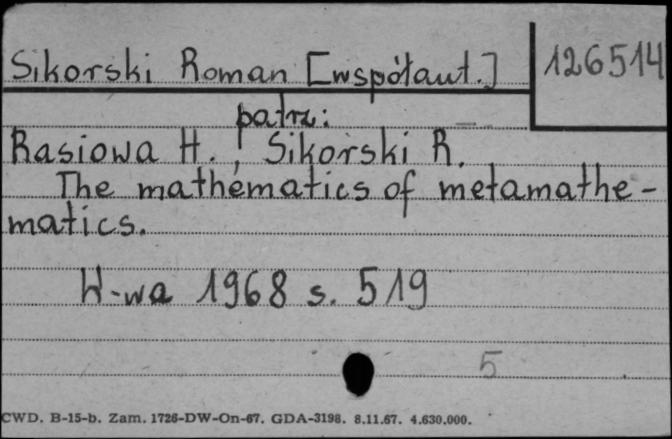 Sikorski Roman [współaut.] 126514
patrz:
Rasiowa H., Sikorski R.
The mathematics of metamathe-
matics.
W-wa 1968 s. 519
5
CWD. B-15-b. Zam. 1726-DW-On-67. GDA-3198. 8.11.67. 4.630.000.